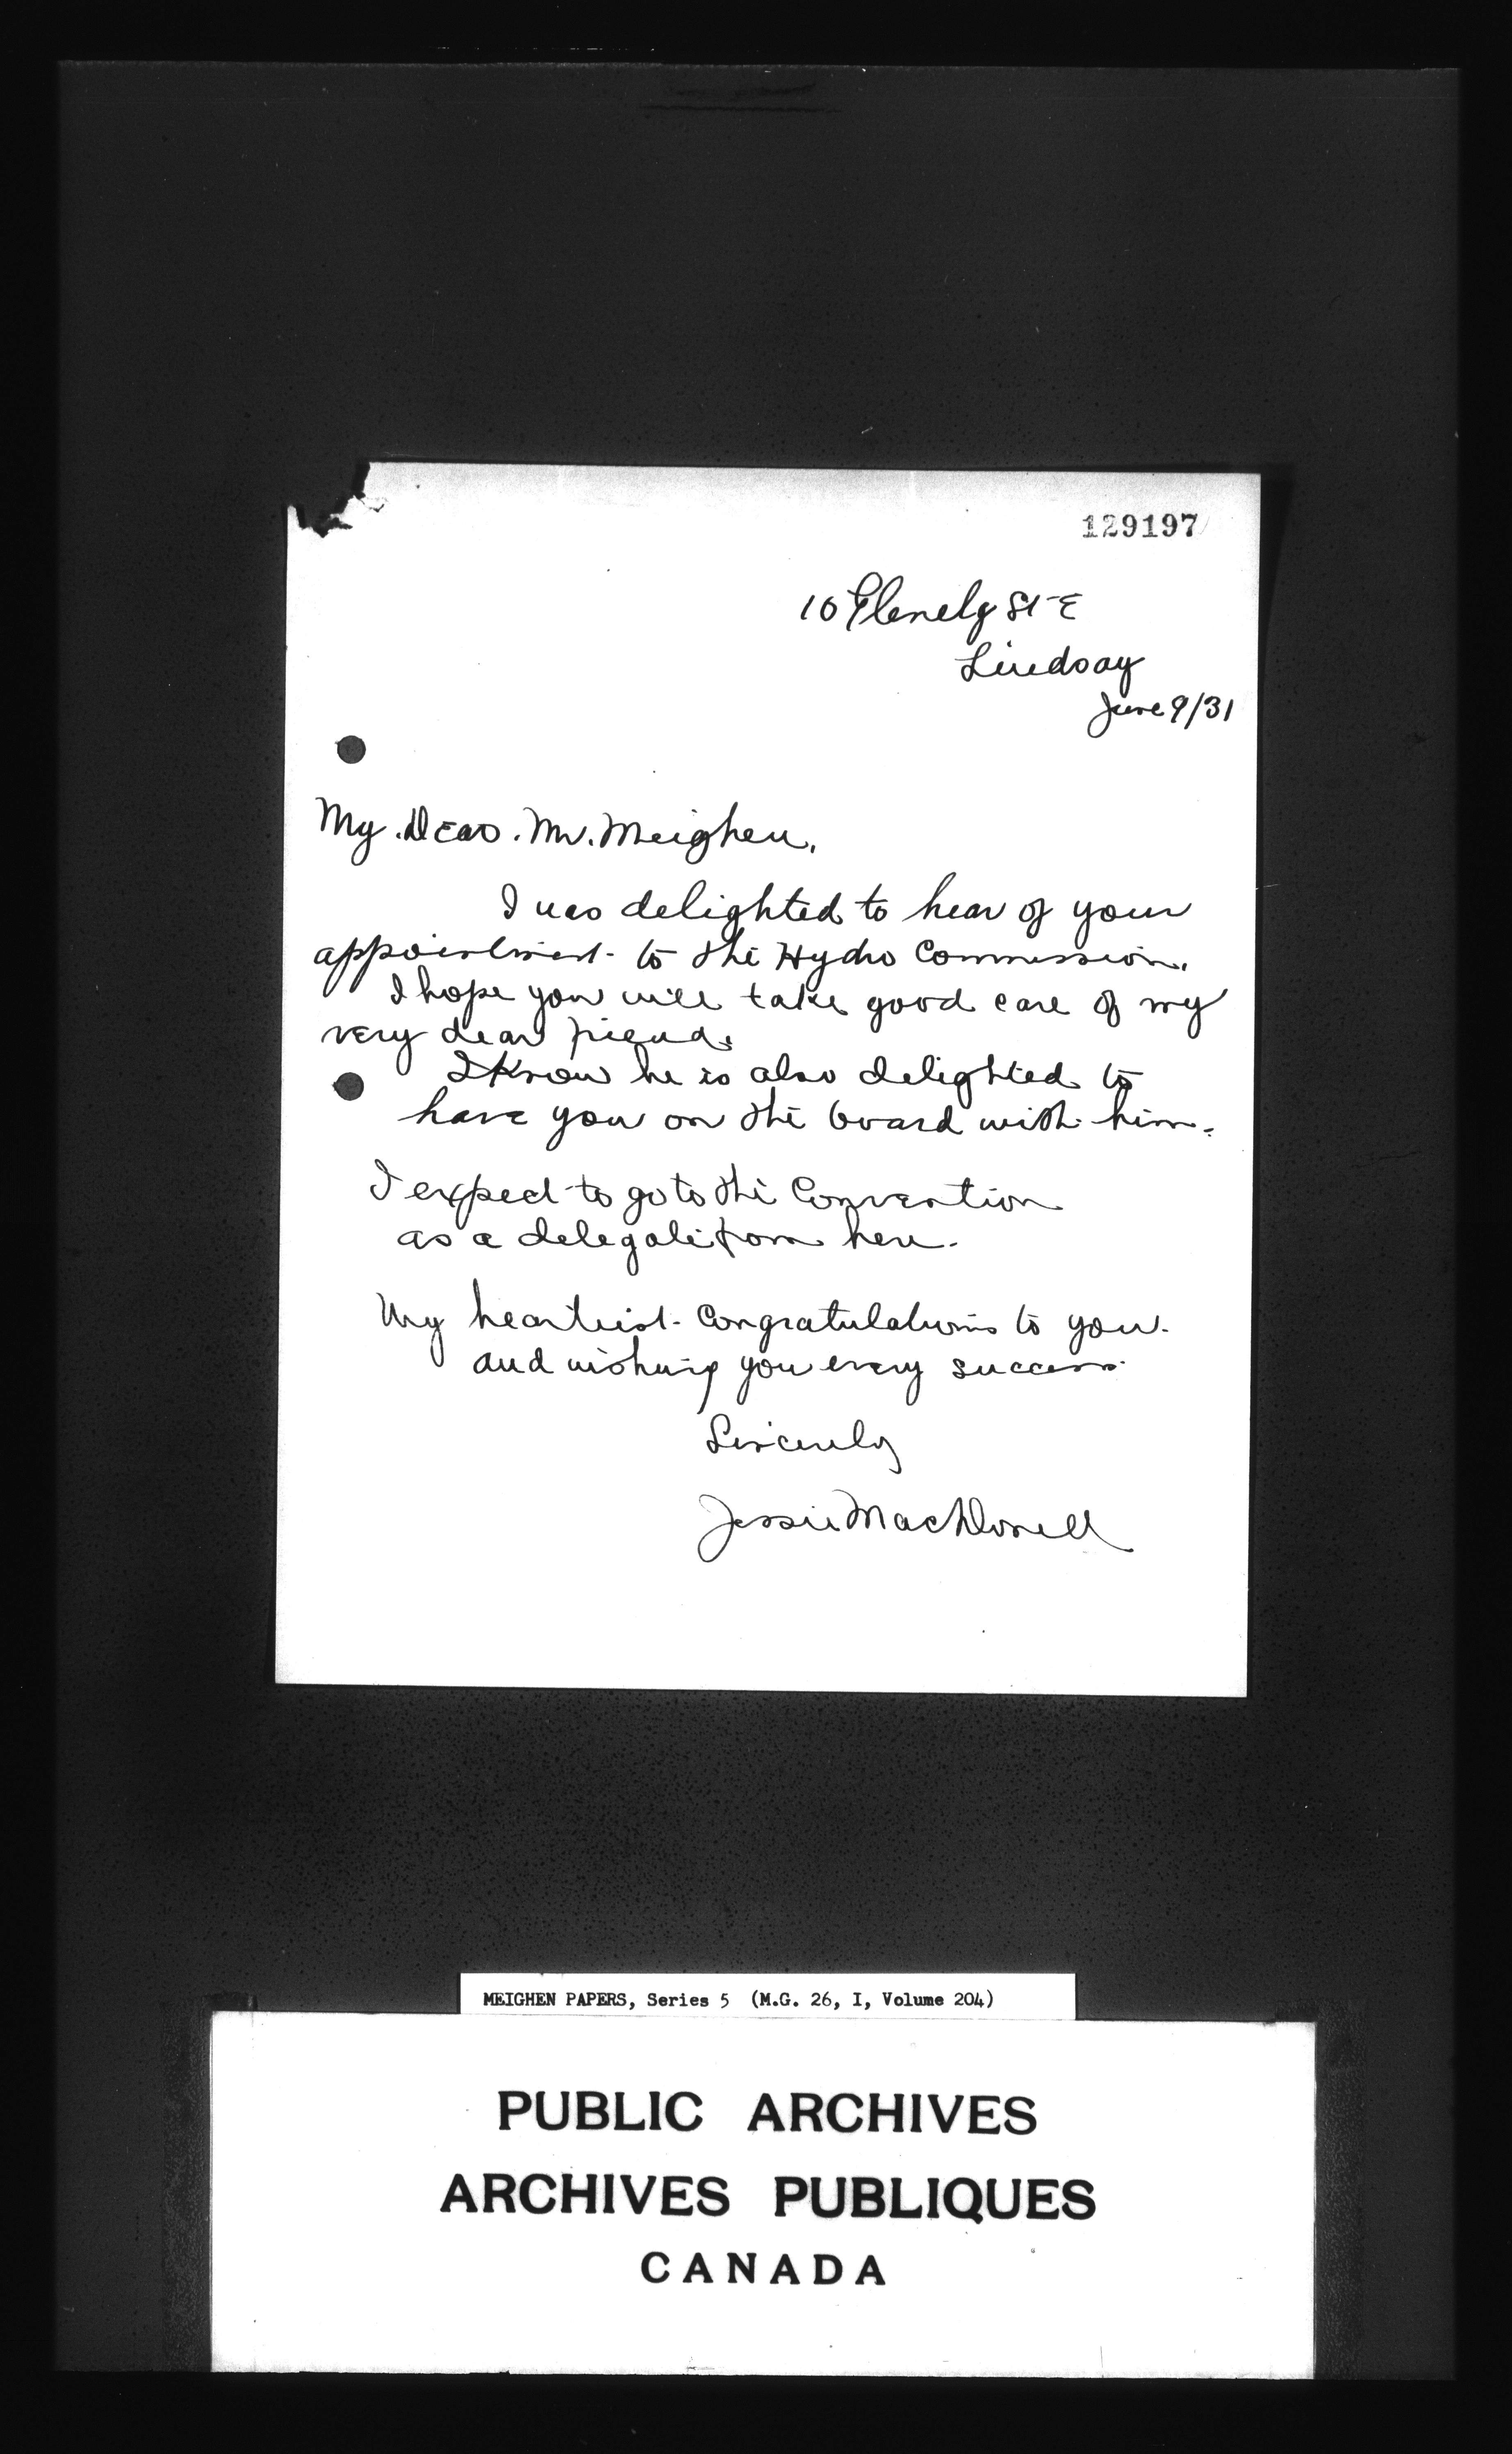 129197
10 Glenelg St E
Lindsay
June 9/31
My Dear Mr. Meighen,
I was delighted to hear of your
appointment to the Hydro Commission.
I hope you will take good care of my
very dear friend.
I know he is also delighted to
have you on the board with him.
I expect to go to the Convention
as a delegate from here.
My heartiest Congratulations to you
and wishing you every success
Sincerely
Jessie MacDonell
MEIGHEN PAPERS, Series 5 (M.G. 26, I, Volume 204)
PUBLIC ARCHIVES
ARCHIVES PUBLIQUES
CANADA